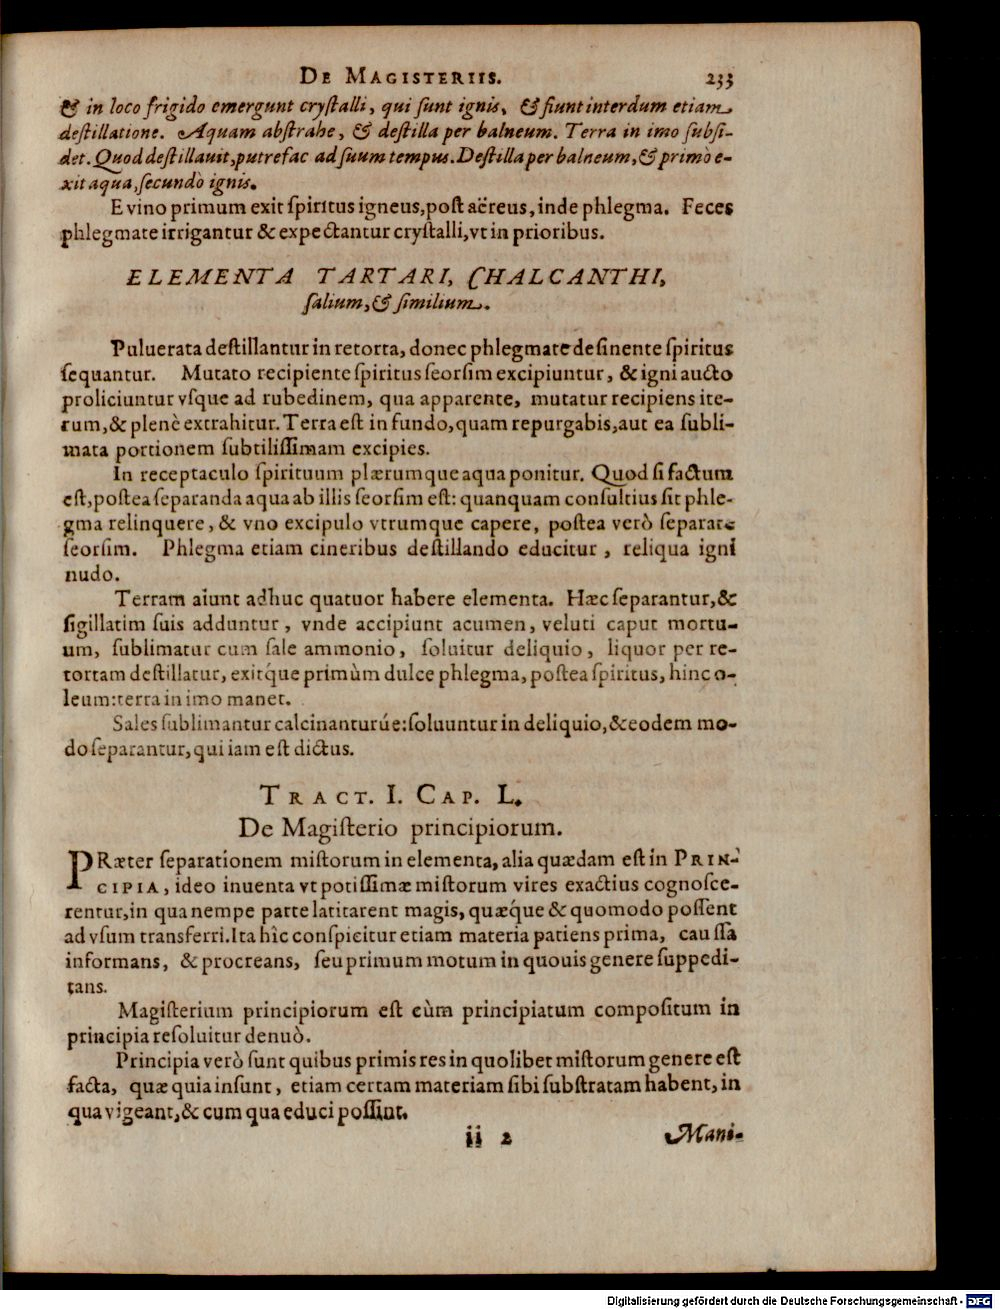 DE MAGISTERIIS. 233
& in loco frigido emergunt cryſtalli, qui ſunt ignis, & fiunt interdum etiam
deſtillatione. Aquam abſtrahe, & deſtilla per balneum. Terra in imo ſubſi-
det. Quod deſtillauit, putrefac ad ſuum tempus. Deſtilla per balneum, & primò e-
xit aqua, ſecundò ignis.
E vino primum exit ſpiritus igneus, poſt aëreus, inde phlegma. Feces
phlegmate irrigantur & expectantur cryſtalli, vt in prioribus.
ELEMENTA TARTARI, CHALCANTHI,
ſalium, & ſimilium.
Puluerata deſtillantur in retorta, donec phlegmate deſinente ſpiritus
ſequantur. Mutato recipiente ſpiritus ſeorſim excipiuntur, & igni aucto
proliciuntur vſque ad rubedinem, qua apparente, mutatur recipiens ite-
rum, & plenè extrahitur. Terra eſt in fundo, quam repurgabis, aut ea ſubli-
mata portionem ſubtiliſſimam excipies.
In receptaculo ſpirituum plærumque aqua ponitur. Quod ſi factum
eſt, poſtea ſeparanda aqua ab illis ſeorſim eſt: quanquam conſultius ſit phle-
gma relinquere, & vno excipulo vtrumque capere, poſtea verò ſeparare
ſeorſim. Phlegma etiam cineribus deſtillando educitur, reliqua igni
nudo.
Terram aiunt adhuc quatuor habere elementa. Hæc ſeparantur, &
ſigillatim ſuis adduntur, vnde accipiunt acumen, veluti caput mortu-
um, ſublimatur cum ſale ammonio, ſoluitur deliquio, liquor per re-
tortam deſtillatur, exitq́ue primùm dulce phlegma, poſtea ſpiritus, hinc o-
leum: terra in imo manet.
Sales ſublimantur calcinanturúe: ſoluuntur in deliquio, & eodem mo-
do ſeparantur, qui iam eſt dictus.
TRACT. I. CAP. L.
De Magiſterio principiorum.
PRæter ſeparationem miſtorum in elementa, alia quædam eſt in PRIN-
CIPIA, ideo inuenta vt potiſſimæ miſtorum vires exactius cognoſce-
rentur, in qua nempe parte latitarent magis, quæq́ue & quomodo poſſent
ad vſum transferri. Ita hîc conſpicitur etiam materia patiens prima, cauſſa
informans, & procreans, ſeu primum motum in quouis genere ſuppedi-
tans.
Magiſterium principiorum eſt cùm principiatum compoſitum in
principia reſoluitur denuò.
Principia verò ſunt quibus primis res in quolibet miſtorum genere eſt
facta, quæ quia inſunt, etiam certam materiam ſibi ſubſtratam habent, in
qua vigeant, & cum qua educi poſſint.
ii 2 Mani-
Digitalisierung gefördert durch die Deutsche Forschungsgemeinschaft - DFG